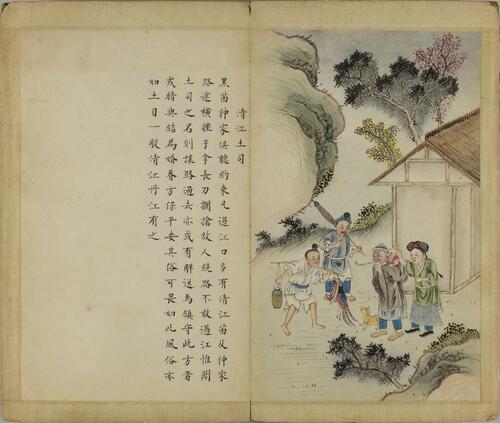 清江土司
黑苗仲家俱聽約束凡過江口多有清江苗及仲家
路途橫捶于拿長刀捆搶故人繞路不敢過江惟聞
土司之名則讓路過去亦或有解送馬鎮守此方者
或轉與結為婚眷方保平安其俗可畏如此風俗亦
如土目一般清江丹江有之